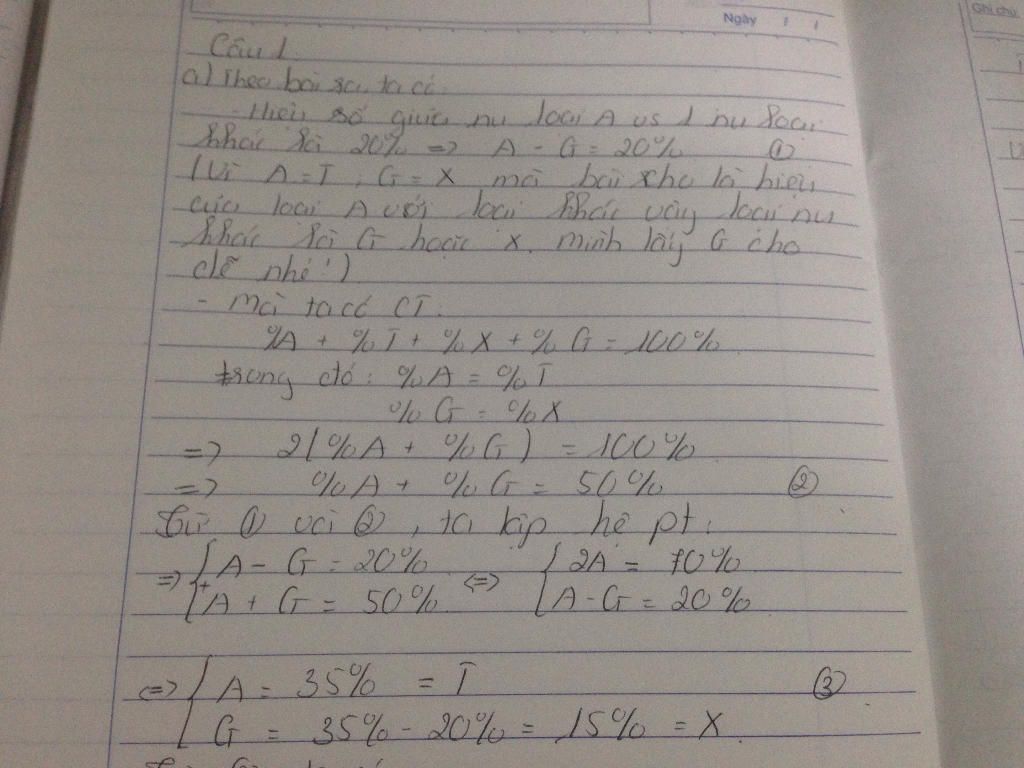 Ngày / /
Ghi chú
Câu 1.
a) Theo bài ra, ta có:
- Hiệu số giữa nu loại A vs 1 nu loại
khác là 20% => A - G = 20% ①
(Vì A = T, G = X mà bài cho là hiệu
của loại A với loại khác vậy loại nu
khác là G hoặc X. mình lấy G cho
dễ nhé!)
- Mà ta có CT:
%A + %T + %X + %G = 100%
trong đó: %A = %T
%G = %X
=> 2(%A + %G) = 100%
=> %A + %G = 50% ②
Từ ① và ②, ta lập hệ pt:
=> { A - G = 20% <=> { 2A = 70%
+ A + G = 50% A - G = 20%
<=> { A = 35% = T ③
G = 35% - 20% = 15% = X